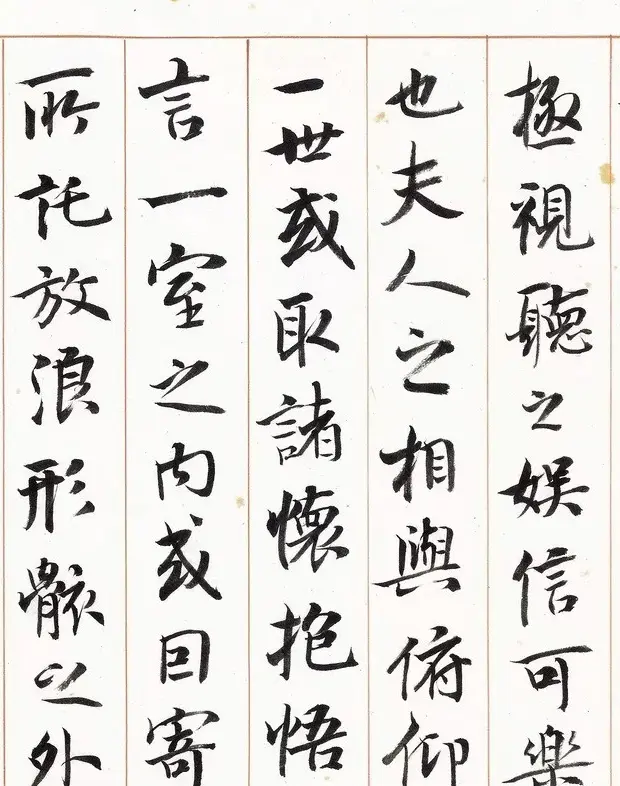 極視聽之娛信可樂
也夫人之相與俯仰
一世或取諸懷抱悟
言一室之内或因寄
所託放浪形骸之外